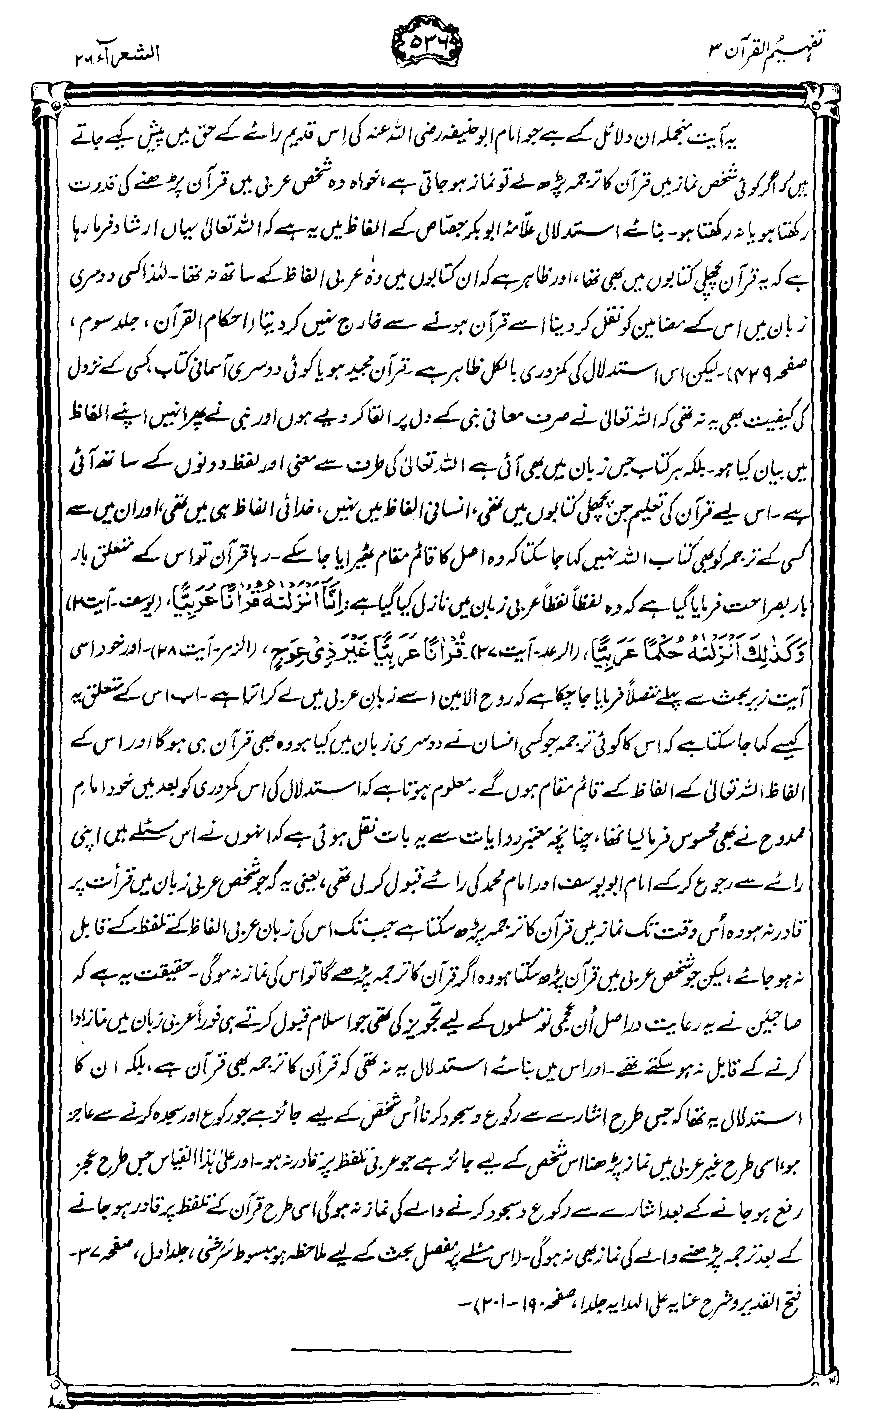 تفہیم القرآن ۳
۵۳۶
الشعرآء ۲۶
یہ آیت منجملہ ان دلائل کے ہے جو امام ابو حنیفہ رضی اللہ عنہ کی اِس قدیم رائے کے حق میں پیش کیے جاتے
ہیں کہ اگر کوئی شخص نماز میں قرآن کا ترجمہ پڑھ لے تو نماز ہو جاتی ہے، خواہ وہ شخص عربی میں قرآن پڑھنے کی قدرت
رکھتا ہو یا نہ رکھتا ہو۔ بنائے استدلال علّامہ ابوبکر جصّاص کے الفاظ میں یہ ہے کہ اللہ تعالیٰ یہاں ارشاد فرما رہا
ہے کہ یہ قرآن پچھلی کتابوں میں بھی تھا، اور ظاہر ہے کہ ان کتابوں میں وہ عربی الفاظ کے ساتھ نہ تھا۔ لہٰذا کسی دوسری
زبان میں اس کے مضامین کو نقل کر دینا اسے قرآن ہونے سے خارج نہیں کر دیتا (احکام القرآن، جلد سوم،
صفحہ ۴۲۹)۔ لیکن اس استدلال کی کمزوری بالکل ظاہر ہے۔ قرآن مجید ہو یا کوئی دوسری آسمانی کتاب، کسی کے نزول
کی کیفیت بھی یہ نہ تھی کہ اللہ تعالیٰ نے صرف معانی نبی کے دل پر القا کر دیے ہوں اور نبی نے پھر انہیں اپنے الفاظ
میں بیان کیا ہو۔ بلکہ ہر کتاب جس زبان میں بھی آئی ہے اللہ تعالیٰ کی طرف سے معنی اور لفظ دونوں کے ساتھ آئی
ہے۔ اس لیے قرآن کی تعلیم جن پچھلی کتابوں میں تھی، انسانی الفاظ میں نہیں، خدائی الفاظ ہی میں تھی، اور ان میں سے
کسی کے ترجمہ کو بھی کتاب اللہ نہیں کہا جا سکتا کہ وہ اصل کا قائم مقام ٹھیرایا جا سکے۔ رہا قرآن تو اس کے متعلق بار
بار بصراحت فرمایا گیا ہے کہ وہ لفظاً لفظاً عربی زبان میں نازل کیا گیا ہے: اِنَّآ اَنْزَلْنٰهُ قُرْاٰنًا عَرَبِيًّا، (یوسف۔ آیت ۲)
وَكَذٰلِكَ اَنْزَلْنٰهُ حُكْمًا عَرَبِيًّا، (الرعد۔ آیت ۳۷)۔ قُرْاٰنًا عَرَبِيًّا غَيْرَ ذِيْ عِوَجٍ، (الزمر۔ آیت ۲۸)۔ اور خود اسی
آیت زیر بحث سے پہلے متصلاً فرمایا جا چکا ہے کہ روح الامین اسے زبان عربی میں لے کر اترا ہے۔ اب اس کے متعلق یہ
کیسے کہا جا سکتا ہے کہ اس کا کوئی ترجمہ جو کسی انسان نے دوسری زبان میں کیا ہو وہ بھی قرآن ہی ہوگا اور اس کے
الفاظ اللہ تعالیٰ کے الفاظ کے قائم مقام ہوں گے۔ معلوم ہوتا ہے کہ استدلال کی اس کمزوری کو بعد میں خود امام
ممدوح نے بھی محسوس فرما لیا تھا، چنانچہ معتبر روایات سے یہ بات نقل ہوئی ہے کہ انہوں نے اس مسئلے میں اپنی
رائے سے رجوع کر کے امام ابو یوسف اور امام محمد کی رائے قبول کر لی تھی، یعنی یہ کہ جو شخص عربی زبان میں قرأت پر
قادر نہ ہو وہ اُس وقت تک نماز میں قرآن کا ترجمہ پڑھ سکتا ہے جب تک اس کی زبان عربی الفاظ کے تلفظ کے قابل
نہ ہو جائے، لیکن جو شخص عربی میں قرآن پڑھ سکتا ہو وہ اگر قرآن کا ترجمہ پڑھے گا تو اس کی نماز نہ ہوگی۔ حقیقت یہ ہے کہ
صاحبین نے یہ رعایت دراصل اُن عجمی نو مسلموں کے لیے تجویز کی تھی جو اسلام قبول کرتے ہی فوراً عربی زبان میں نماز ادا
کرنے کے قابل نہ ہو سکتے تھے۔ اور اس میں بنائے استدلال یہ نہ تھی کہ قرآن کا ترجمہ بھی قرآن ہے، بلکہ ان کا
استدلال یہ تھا کہ جس طرح اشارے سے رکوع و سجود کرنا اُس شخص کے لیے جائز ہے جو رکوع اور سجدہ کرنے سے عاجز
ہو، اسی طرح غیر عربی میں نماز پڑھنا اس شخص کے لیے جائز ہے جو عربی تلفظ پر قادر نہ ہو۔ اور علیٰ ہٰذا القیاس جس طرح عجز
رفع ہو جانے کے بعد اشارے سے رکوع و سجود کرنے والے کی نماز نہ ہوگی اسی طرح قرآن کے تلفظ پر قادر ہو جانے
کے بعد ترجمہ پڑھنے والے کی نماز بھی نہ ہوگی۔ (اس مسئلے پر مفصل بحث کے لیے ملاحظہ ہو مبسوط سَرَخسی، جلد اول، صفحہ ۳۷۔
فتح القدیر و شرح عنایہ علی الہدایہ جلد ۱، صفحہ ۱۹۰۔۲۰۱)۔